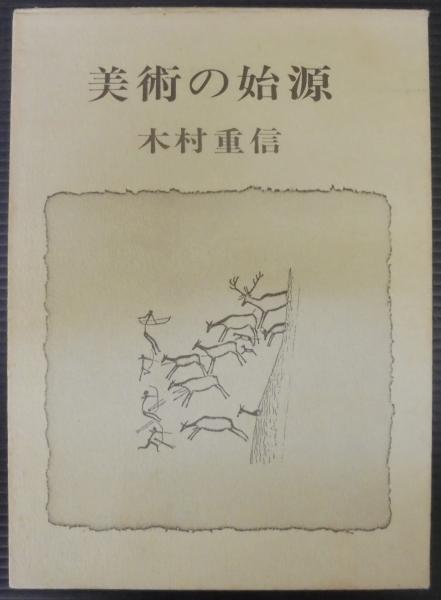 美術の始源
木村重信